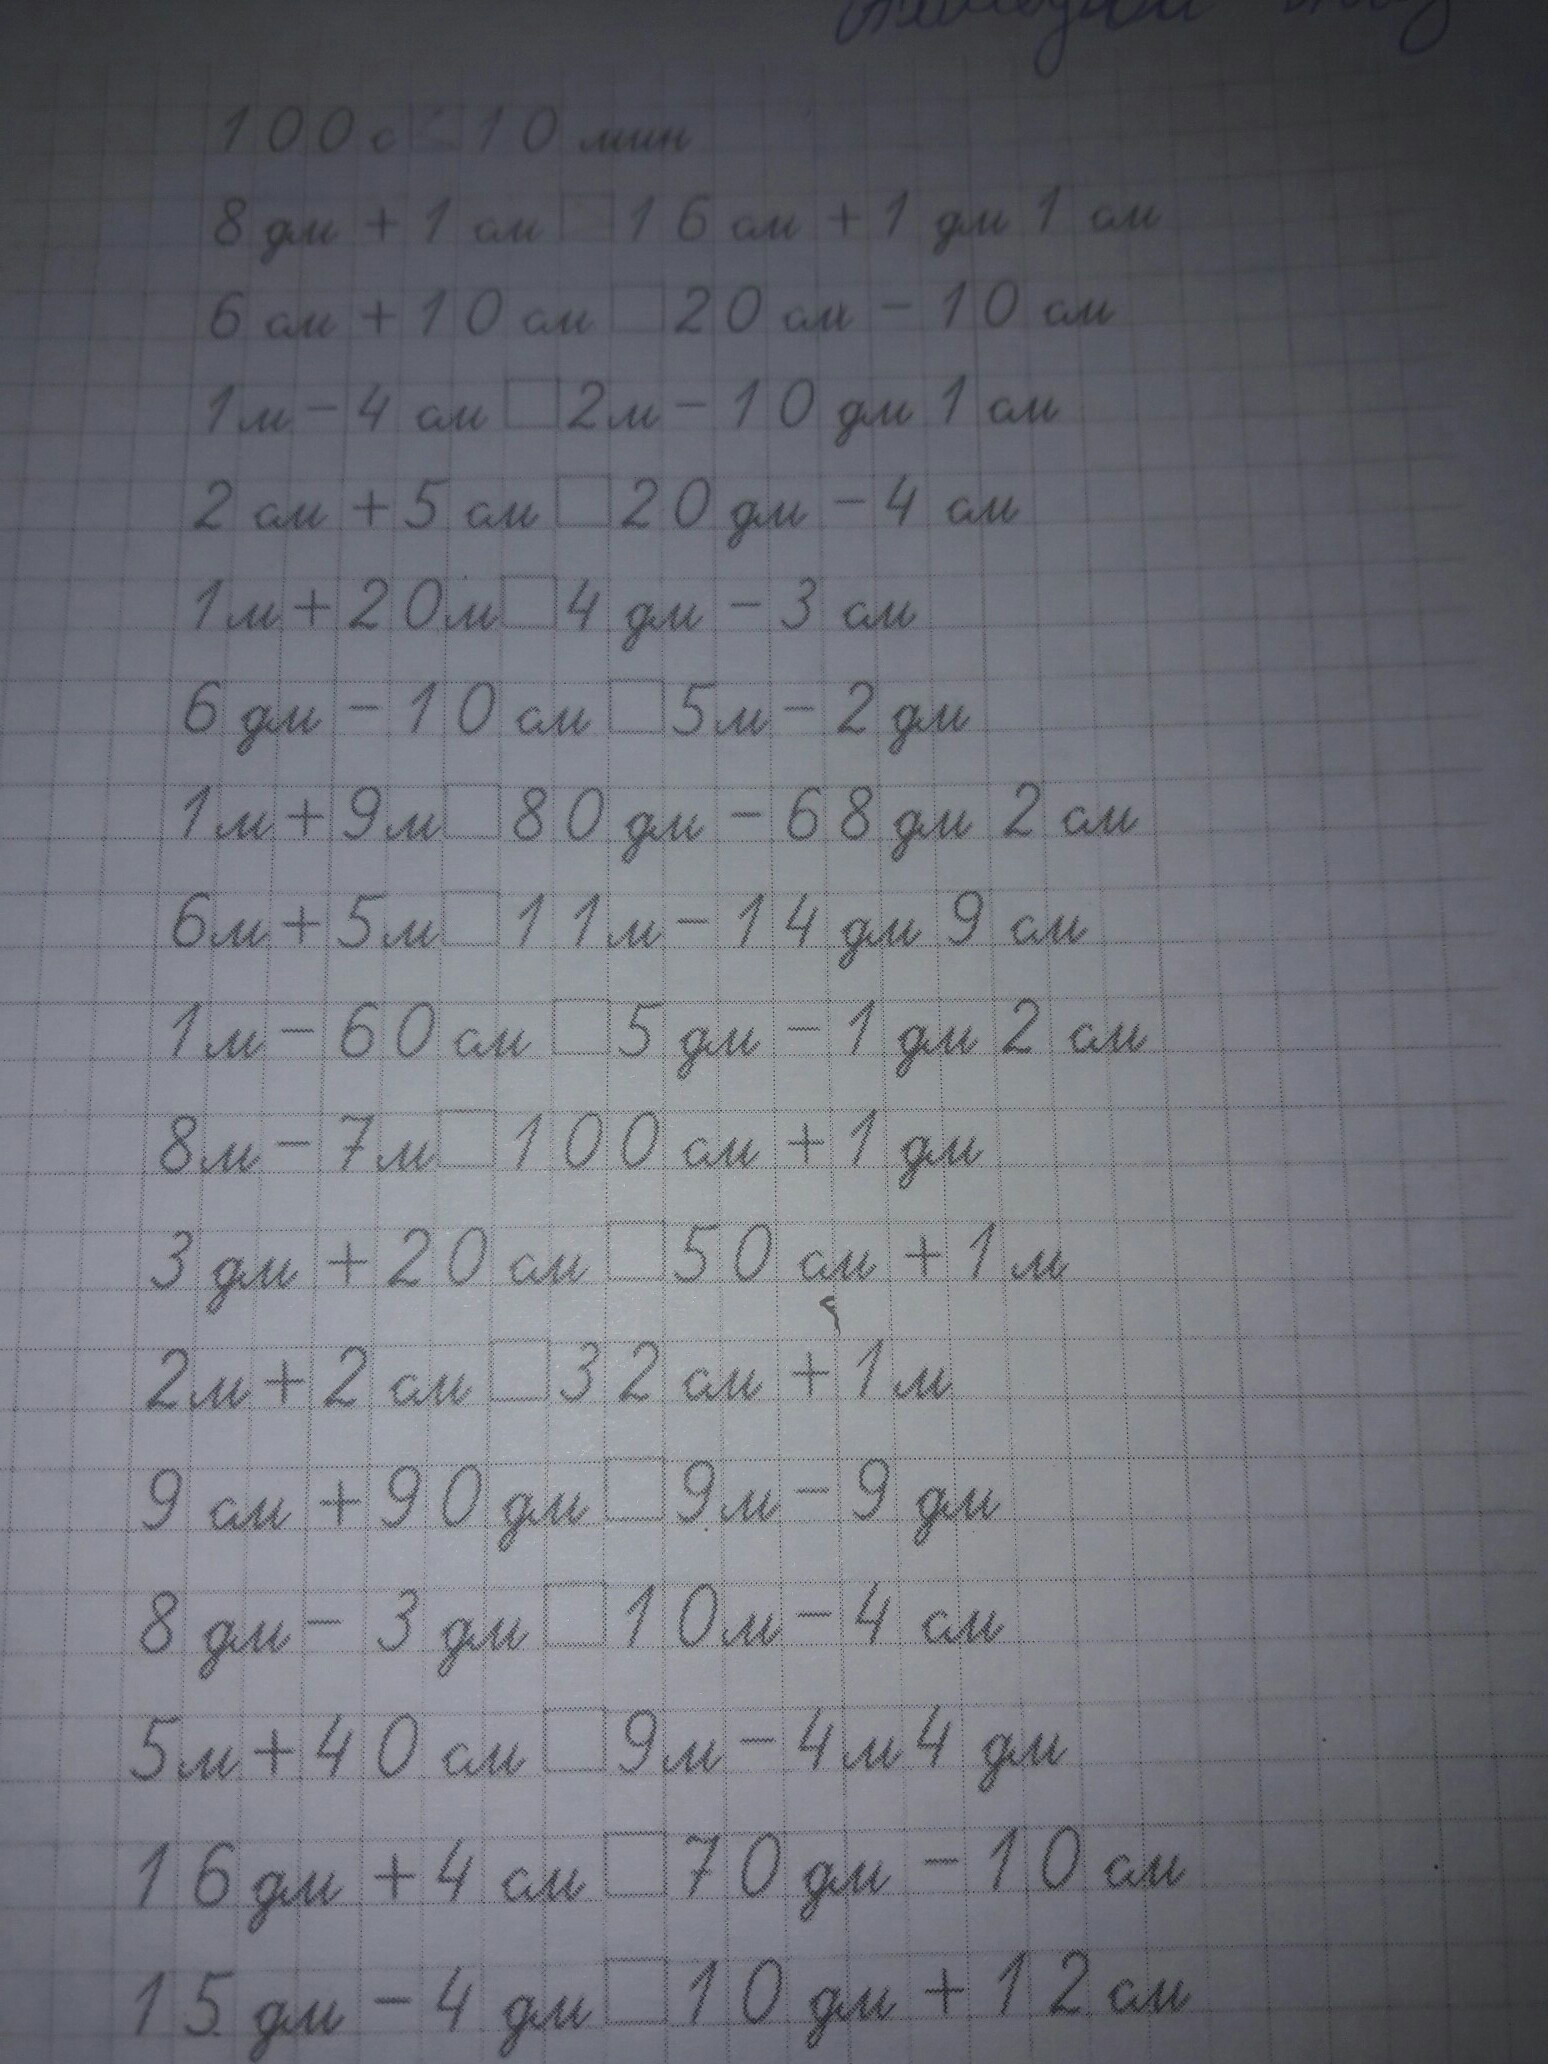 100с < 10 мин
8 дм + 1 см □ 16 см + 1 дм 1 см
6 см + 10 см □ 20 см - 10 см
1м - 4 см □ 2м - 10 дм 1 см
2 см + 5 см □ 20 дм - 4 см
1м + 20м □ 4 дм - 3 см
6 дм - 10 см □ 5м - 2 дм
1м + 9м □ 80 дм - 68 дм 2 см
6м + 5м □ 11м - 14 дм 9 см
1м - 60 см □ 5 дм - 1 дм 2 см
8м - 7м □ 100 см + 1 дм
3 дм + 20 см □ 50 см + 1м
2м + 2 см □ 32 см + 1м
9 см + 90 дм □ 9м - 9 дм
8 дм - 3 дм □ 10м - 4 см
5м + 40 см □ 9м - 4м 4 дм
16 дм + 4 см □ 70 дм - 10 см
15 дм - 4 дм □ 10 дм + 12 см